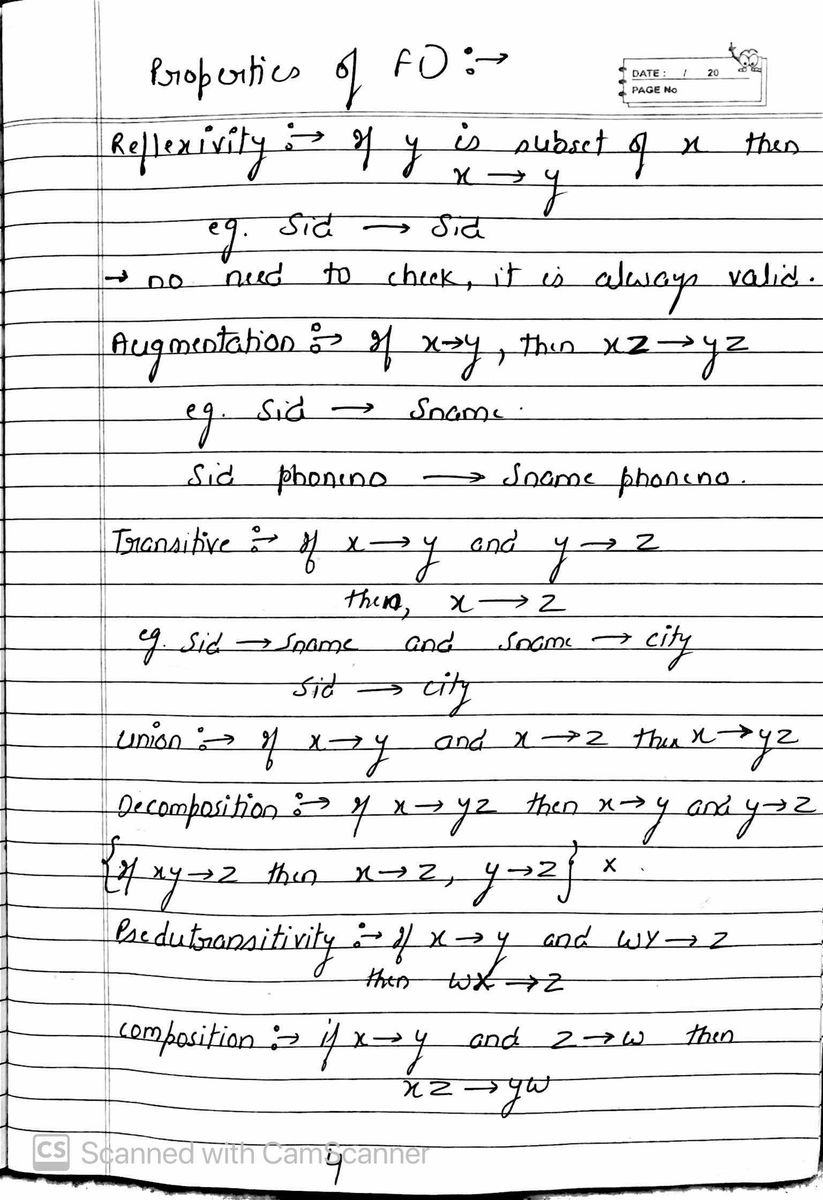 Properties of FD :→
DATE : / 20
PAGE No
Reflexivity :→ If y is subset of x then
x → y
eg. Sid → Sid
→ no need to check, it is always valid.
Augmentation :→ If x→y, then xz→yz
eg. Sid → Sname.
Sid phoneno → Sname phoneno.
Transitive :→ If x→y and y→z
then, x→z
eg. Sid → Sname and Sname → city
Sid → city
Union :→ If x→y and x→z then x→yz
Decomposition :→ If x→yz then x→y and y→z
{If xy→z then x→z, y→z} x .
Psedutransitivity :→ If x→y and wy→z
then wx→z
composition :→ if x→y and z→w then
xz→yw
CS Scanned with CamScanner
9